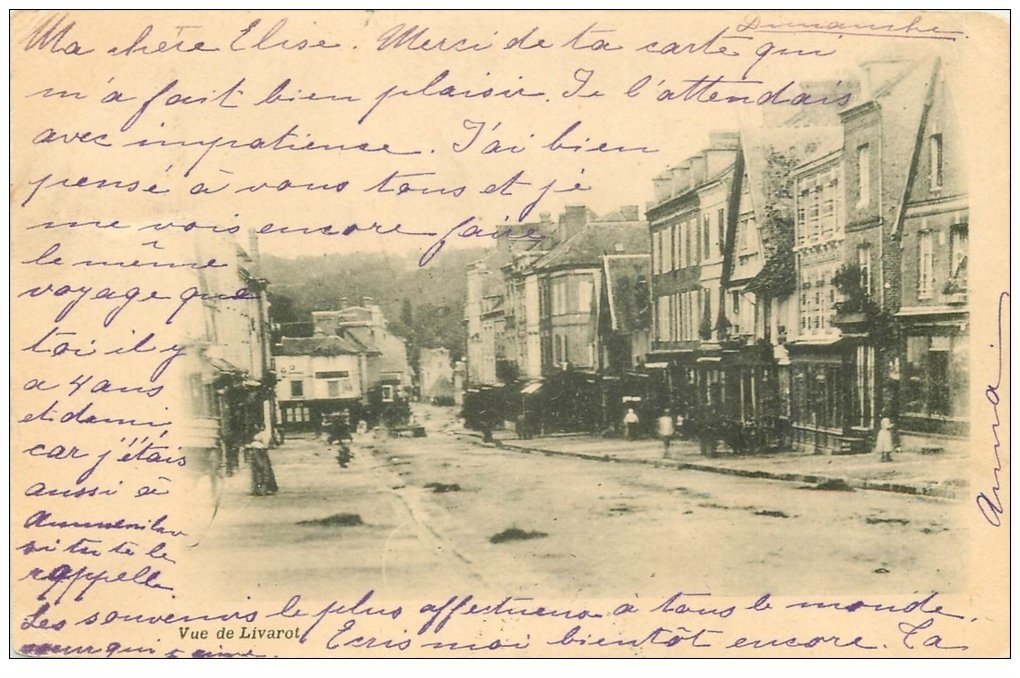 Dimanche
Ma chère Elise. Merci de ta carte qui
m'a fait bien plaisir. Je l'attendais
avec impatiense. J'ai bien
pensé à vous tous et je
me vois encore faire
le même
voyage que
toi il y
a 4 ans
et demi,
car j'étais
aussi à
si tu te le
rappelle.
Les souvenirs le plus affectueux à tous le monde.
Vue de Livarot
Ecris moi bientôt encore. Ta
qui t'aime.
Anna